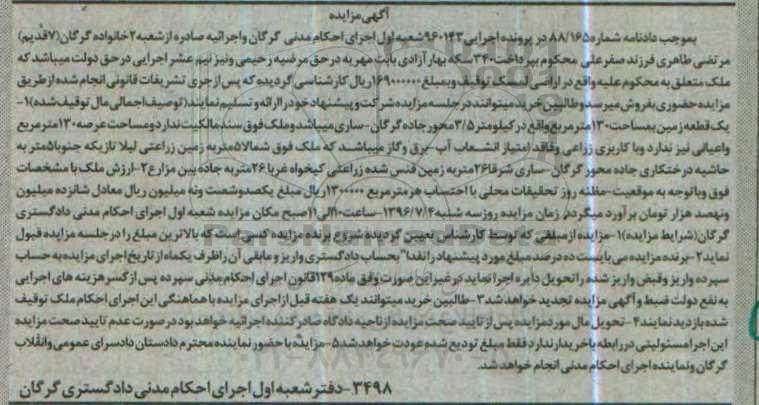 آگهی مزایده
بموجب دادنامه شماره ۸۸/۱۶۵ در پرونده اجرایی ۹۶۰۱۴۳ شعبه اول اجرای احکام مدنی گرگان و اجرائیه صادره از شعبه ۲ خانواده گرگان (۷قدیم)
مرتضی طاهری فرزند صفرعلی محکوم بپرداخت ۳۴۰ سکه بهار آزادی بابت مهریه در حق مرضیه رحیمی و نیز نیم عشر اجرایی در حق دولت میباشد که
ملک متعلق به محکوم علیه واقع در اراضی توقیف و بمبلغ ۱۶۹۰۰۰۰۰۰ ریال کارشناسی گردیده که پس از جری تشریفات قانونی انجام شده از طریق
مزایده حضوری بفروش میرسد و طالبین خرید میتوانند در جلسه مزایده شرکت و پیشنهاد خود را ارائه و تسلیم نمایند (توصیف اجمالی مال توقیف شده) ۱-
یک قطعه زمین بمساحت ۱۳۰ متر مربع واقع در کیلومتر ۳/۵ محور جاده گرگان - ساری میباشد و ملک فوق سند مالکیت ندارد و مساحت عرصه ۱۳۰ متر مربع
و اعیانی نیز ندارد و با کاربری زراعی و فاقد امتیاز انشعاب آب - برق و گاز میباشد که ملک فوق شمالا ۵ متر به زمین زراعتی لیلا تازیکه جنوبا ۵ متر به
حاشیه در ختکاری جاده محور گرگان - ساری شرقا ۲۶ متر به زمین فنس شده زراعتی کیخواه غربا ۲۶ متر به جاده بین مزارع ۲- ارزش ملک با مشخصات
فوق و با توجه به موقعیت - مظنه روز تحقیقات محلی با احتساب هر متر مربع ۱۳۰۰۰۰۰ ریال مبلغ یکصد و شصت و نه میلیون ریال معادل شانزده میلیون
و نهصد هزار تومان برآورد میگردد زمان مزایده روز سه شنبه ۱۳۹۶/۷/۴ - ساعت ۱۰ الی ۱۱ صبح مکان مزایده شعبه اول اجرای احکام مدنی دادگستری
گرگان (شرایط مزایده) ۱- مزایده از مبلغی که توسط کارشناس تعیین گردیده شروع برنده مزایده کسی است که بالاترین مبلغ را در جلسه مزایده قبول
نماید ۲- برنده مزایده می بایست ده درصد مبلغ مورد پیشنهاد را نقدا" بحساب دادگستری واریز و مابقی آن را ظرف یکماه از تاریخ اجرای مزایده به حساب
سپرده واریز و قبض واریز شده را تحویل دایره اجرا نماید در غیر این صورت وفق ماده ۱۲۹ قانون اجرای احکام مدنی سپرده پس از کسر هزینه های اجرایی
به نفع دولت ضبط و آگهی مزایده تجدید خواهد شد ۳- طالبین خرید میتوانند یک هفته قبل از اجرای مزایده با هماهنگی این اجرای احکام ملک توقیف
شده بازدید نمایند ۴- تحویل مال مورد مزایده پس از تایید صحت مزایده از ناحیه دادگاه صادر کننده اجرائیه خواهد بود در صورت عدم تایید صحت مزایده
این اجرا مسئولیتی در رابطه با خریدار ندارد فقط مبلغ تودیع شده عودت خواهد شد ۵- مزایده با حضور نماینده محترم دادستان دادسرای عمومی و انقلاب
گرگان و نماینده اجرای احکام مدنی انجام خواهد شد.
۳۴۹۸- دفتر شعبه اول اجرای احکام مدنی دادگستری گرگان